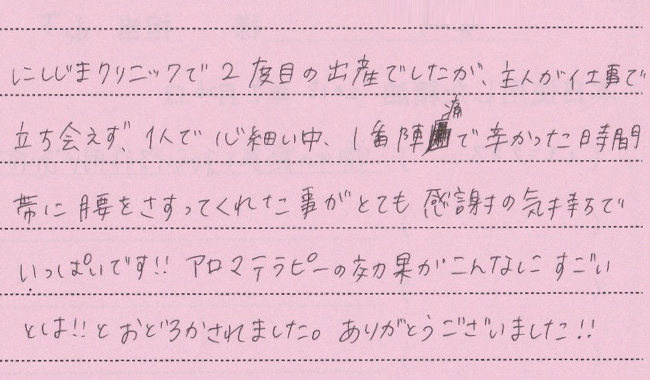 にしじまクリニックで2度目の出産でしたが、主人が仕事で
立ち会えず、1人で心細い中、1番陣痛で辛かった時間
帯に腰をさすってくれた事がとても感謝の気持ちで
いっぱいです!! アロマテラピーの効果がこんなにすごい
とは!!とおどろかされました。ありがとうございました!!